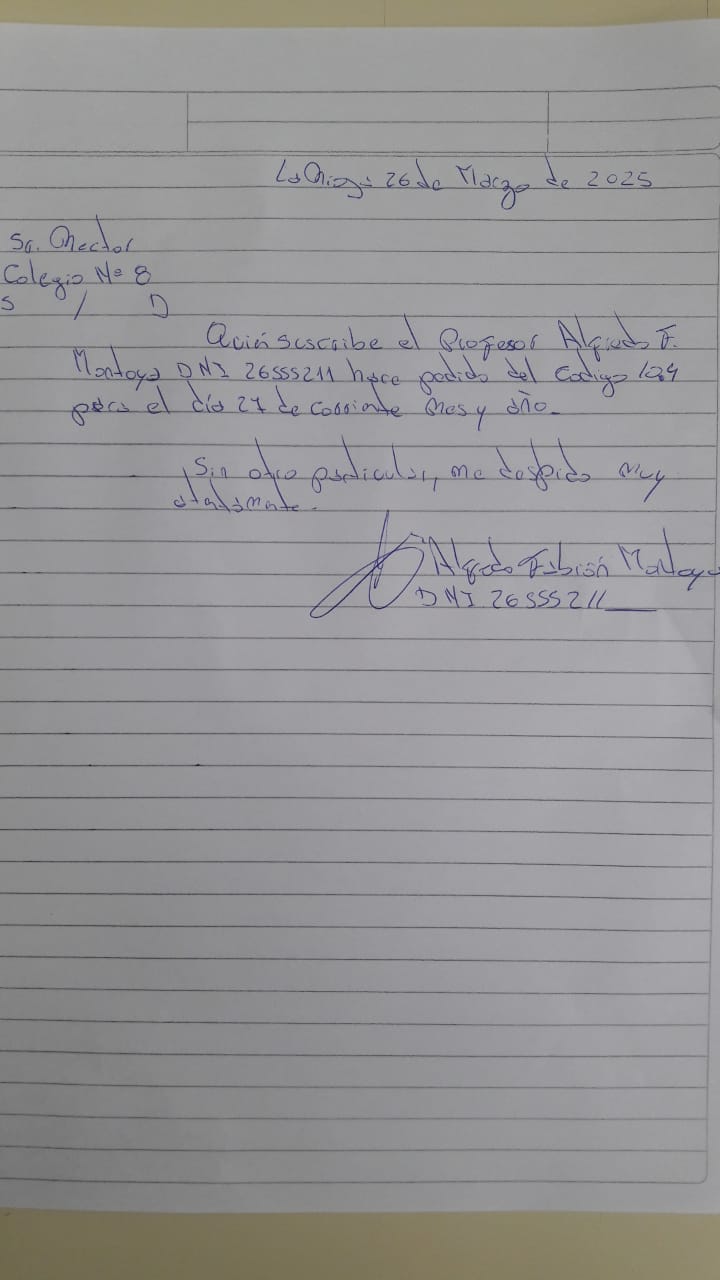 26 de Marzo de 2025
Sr. Director
Colegio Nº 8
S / D
Quien suscribe el Profesor Alfredo F.
Montoya DNI 26555211 hace pedido del Codigo 124
para el día 27 de corriente mes y año.
Sin otro particular, me despido muy
atentamente.
Alfredo Fabián Montoya
DNI 26555211